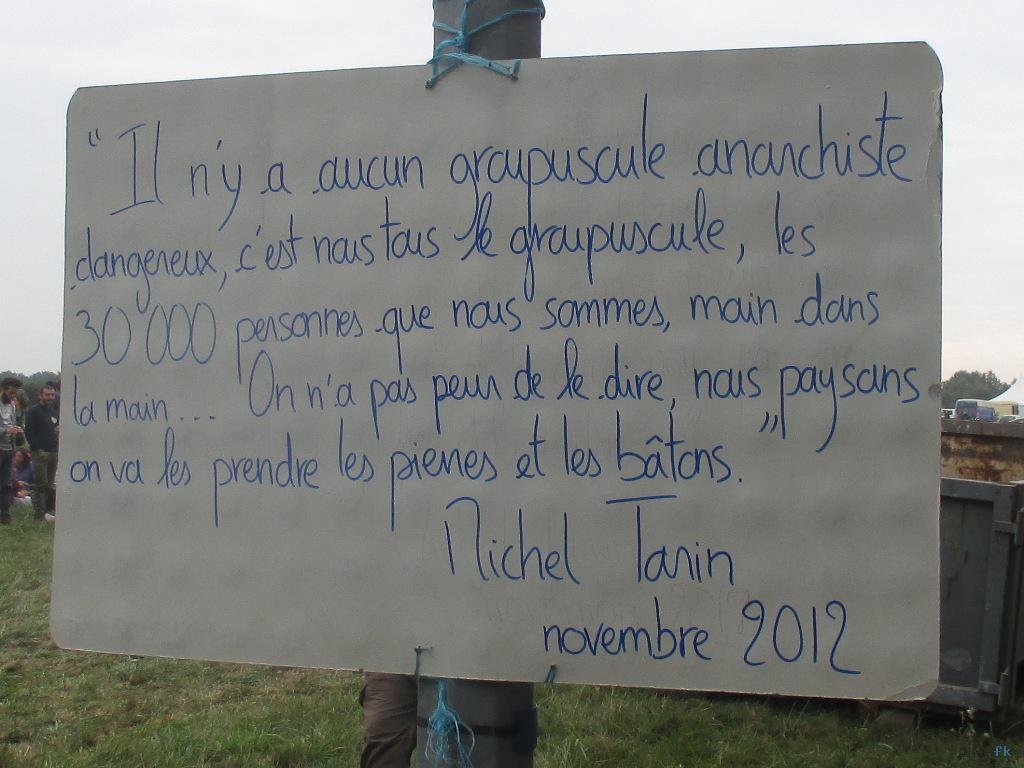 “Il n'y a aucun groupuscule anarchiste
dangereux, c'est nous tous le groupuscule, les
30'000 personnes que nous sommes, main dans
la main... On n'a pas peur de le dire, nous paysans
on va les prendre les pierres et les bâtons.”
Michel Tarin
novembre 2012
fk